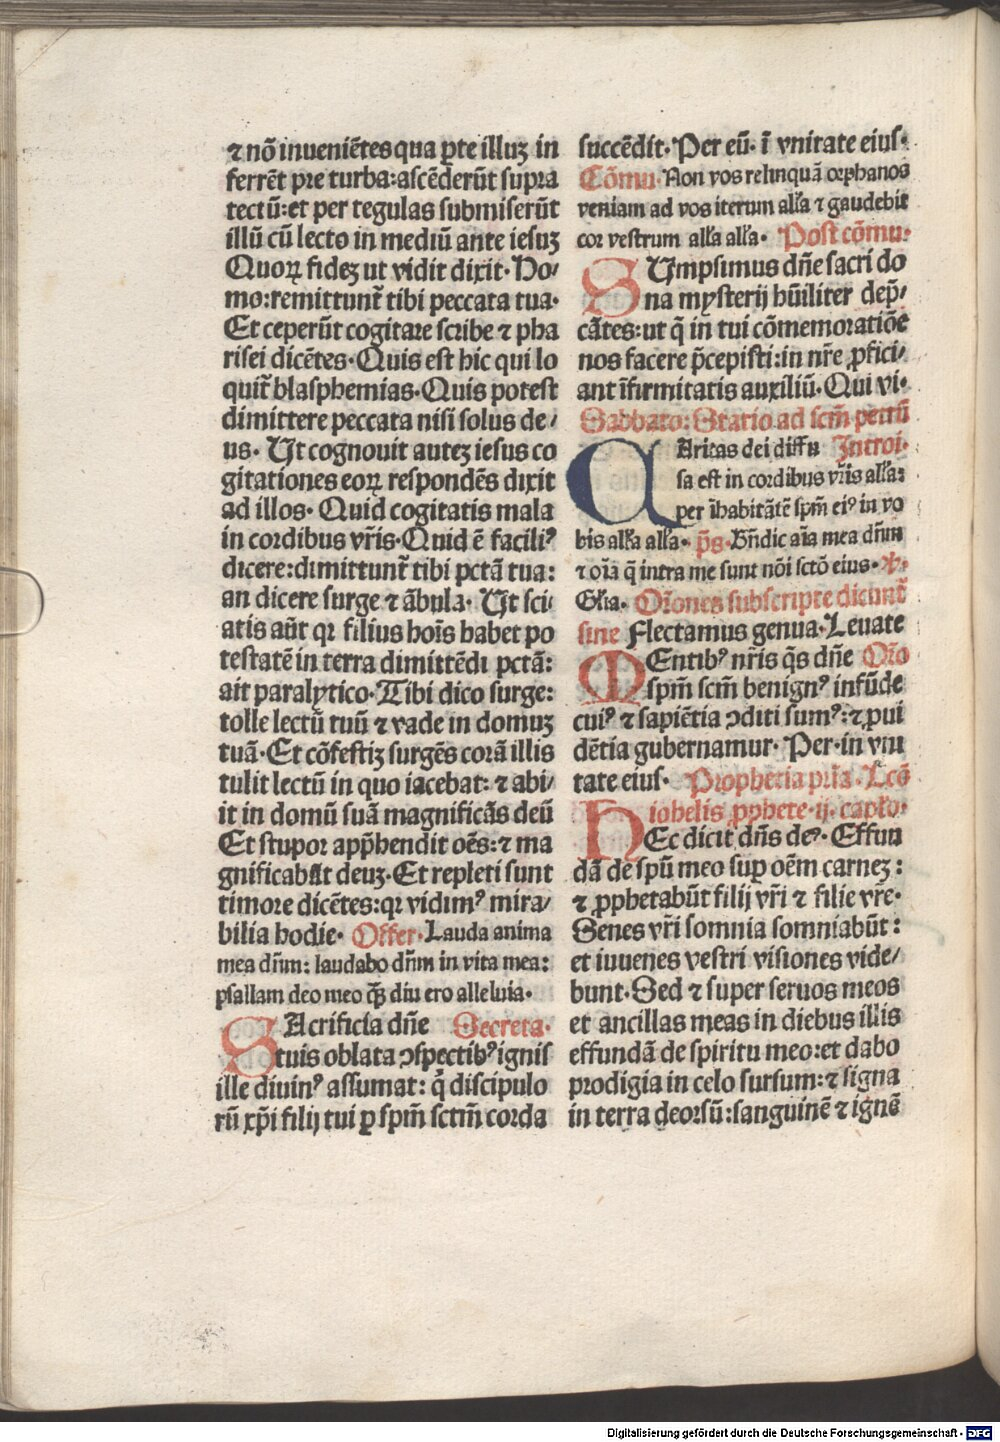 ⁊ nō inueniētes qua ꝑte illuʒ in
ferrēt pre turba:ascēderūt supra
tectū:et per tegulas submiserūt
illū cū lecto in mediū ante iesuʒ
Quoꝝ fideʒ ut vidit dixit·Ho/
mo:remittunt᷑ tibi peccata tua·
Et ceperūt cogitare scribe ⁊ pha
risei dicētes·Quis est hic qui lo
quit᷑ blasphemias·Quis potest
dimittere peccata nisi solus de/
us· Ut cognouit auteʒ iesus co
gitationes eoꝝ respondēs dixit
ad illos· Quid cogitatis mala
in cordibus vr̄is·Quid ē faciliꝰ
dicere:dimittunt᷑ tibi pctā tua:
an dicere surge ⁊ ābula· Ut sci/
atis aūt qꝛ filius hoīs habet po
testatē in terra dimittēdi pctā:
ait paralytico·Tibi dico surge:
tolle lectū tuū ⁊ vade in domuʒ
tuā·Et cōfestiʒ surgēs corā illis
tulit lectū in quo iacebat: ⁊ abi/
it in domū suā magnificās deū
Et stupor app̄hendit oēs:⁊ ma
gnificabāt deuʒ·Et repleti sunt
timore dicētes:qꝛ vidimꝰ mira/
bilia hodie· Offer·Lauda anima
mea dn̄m: laudabo dn̄m in vita mea:
psallam deo meo qͣ̄ʒ diu ero alleluia·
SAcrificia dn̄e Secreta·
tuis oblata ↄspectibꝰ ignis
ille diuinꝰ assumat: q̇ discipulo
rū xp̄i filij tui ꝑ spm̄ sctm̄ corda
succēdit·Per eū· ī vnitate eius·
Cōmu·Non vos relinquā orphanos
veniam ad vos iterum all'a ⁊ gaudebit
cor vestrum all'a all'a· Post cōmu:
SUmpsimus dn̄e sacri do
na mysterij hūiliter dep̄/
cātes:ut q̄ in tui cōmemoratiōe
nos facere p̄cepisti:in nr̄e ꝓfici/
ant īfirmitatis auxiliū·Qui vi·
Sabbato: Statio ad scm̄ petrū
CAritas dei diffu Introi·
sa est in cordibus vr̄is all'a:
per īhabitātē spm̄ eiꝰ in vo
bis all'a all'a· p̄s·Bn̄dic aīa mea dn̄m
⁊ oīa q̄ intra me sunt nōi sctō eius·℣·
Gl'ia· Or̄ones subscripte dicunt᷑
sine Flectamus genua·Leuate
MEntibꝰ nr̄is q̄s dn̄e Or̄o
spm̄ scm̄ benignꝰ infūde
cuiꝰ ⁊ sapiētia ↄditi sumꝰ:⁊ ꝓui
dētia gubernamur· Per·in vni
tate eius· Prophetia pri̅a·Lcō
iohelis ꝓphete·ij·capl'o·
HEc dicit dn̄s deꝰ· Effun
dā de spū meo suꝑ oēm carneʒ:
⁊ ꝓphetabūt filij vr̄i ⁊ filie vr̄e·
Senes vr̄i somnia somniabūt:
et iuuenes vestri visiones vide/
bunt·Sed ⁊ super seruos meos
et ancillas meas in diebus illis
effundā de spiritu meo:et dabo
prodigia in celo sursum:⁊ signa
in terra deorsū:sanguinē ⁊ ignē
Digitalisierung gefördert durch die Deutsche Forschungsgemeinschaft - DFG